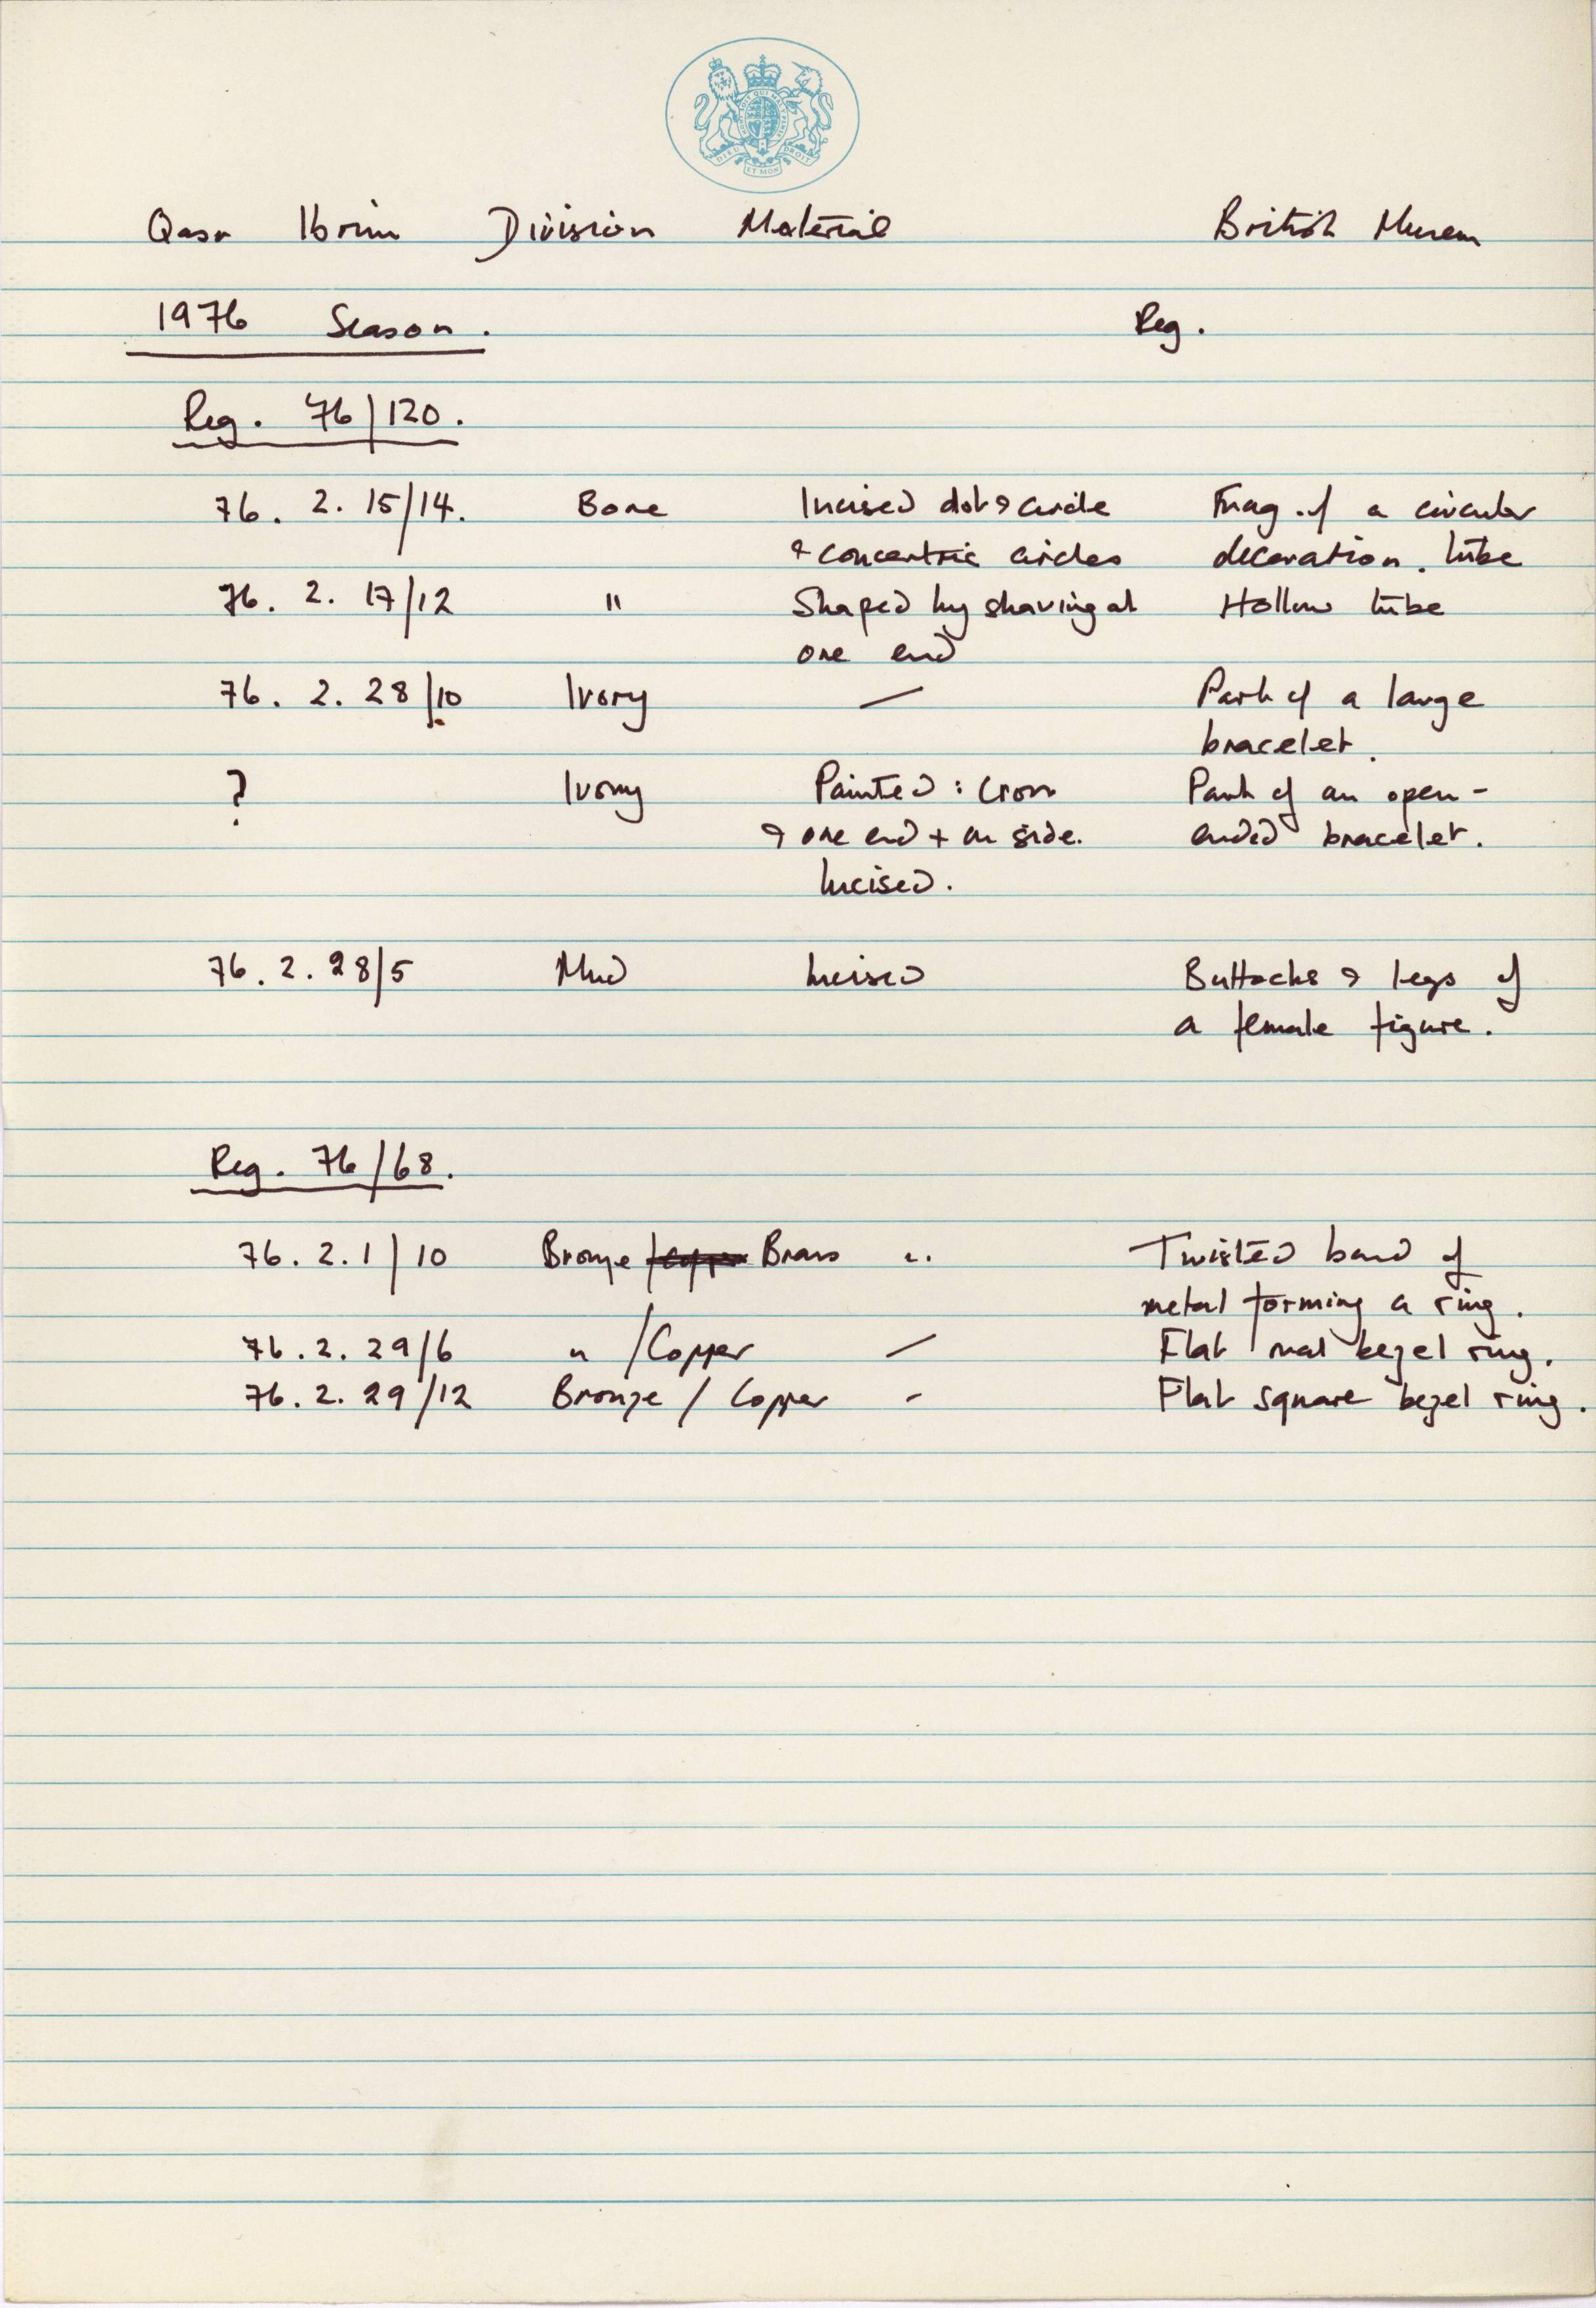 HONI SOIT QUI MAL Y PENSE
DIEU ET MON DROIT
Qasr Ibrim Division Material British Museum
1976 Season. Reg.
Reg. 76/120.
76. 2. 15/14. Bone Incised dot & circle Frag. of a circular
& concentric circles decoration. tube
76. 2. 17/12 " Shaped by shaving at Hollow tube
one end
76. 2. 28/10 Ivory — Part of a large
bracelet.
? Ivory Painted: Cross Part of an open-
& one end + on side. ended bracelet.
Incised.
76. 2. 28/5 Mud Incised Buttocks & legs of
a female figure.
Reg. 76/68.
76. 2. 1/10 Bronze / Brass Twisted band of
metal forming a ring.
76. 2. 29/6 " /Copper — Flat oval bezel ring.
76. 2. 29/12 Bronze / Copper - Flat square bezel ring.